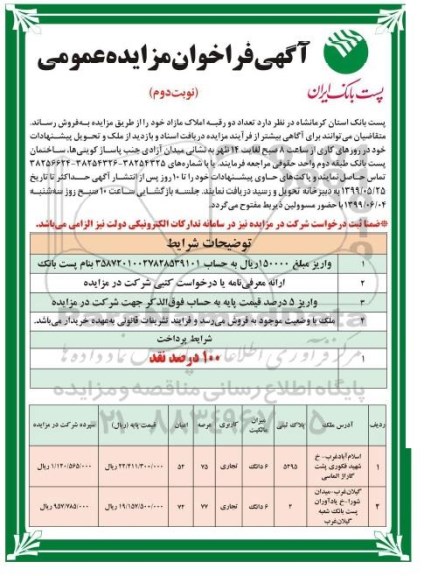 آگهی فراخوان مزایده عمومی
(نوبت دوم)
پست بانک ایران
پست بانک استان کرمانشاه در نظر دارد تعداد دو رقبه املاک مازاد خود را از طریق مزایده به‌فروش رساند.
متقاضیان می‌توانند برای آگاهی بیشتر از فرآیند مزایده دریافت اسناد و بازدید از ملک و تحویل پیشنهادات
خود در روزهای کاری از ساعت ۸ صبح لغایت ۱۴ ظهر به نشانی میدان آزادی جنب پاساژ کوبنی‌ها، ساختمان
پست بانک طبقه دوم واحد حقوقی مراجعه فرمایند یا با شماره‌های ۳۸۲۵۴۳۲۵-۳۸۲۵۴۳۲۶-۳۸۲۵۶۶۲۴
تماس حاصل نمایند و پاکت‌های حاوی پیشنهادات خود را تا ۱۰ روز پس از انتشار آگهی حداکثر تا تاریخ
۱۳۹۹/۰۵/۲۵ به دبیرخانه تحویل و رسید دریافت نمایند. جلسه بازگشایی ساعت ۱۰ صبح روز سه‌شنبه
۱۳۹۹/۰۶/۰۴ با حضور مسوولین ذیربط مفتوح می‌گردد.
*ضمنا ثبت درخواست شرکت در مزایده نیز در سامانه تدارکات الکترونیکی دولت نیز الزامی می‌باشد.
توضیحات شرایط
۱ واریز مبلغ ۱۵۰۰۰۰ ریال به حساب ۳۵۸۷۲۰۱۰۰۲۷۸۲۸۵۳۹۱۰۱ بنام پست بانک
۲ ارائه معرفی‌نامه یا درخواست کتبی شرکت در مزایده
۳ واریز ۵ درصد قیمت پایه به حساب فوق‌الذکر جهت شرکت در مزایده
۴ ملک با وضعیت موجود به فروش می‌رسد و فرایند تشریفات قانونی به‌عهده خریدار می‌باشد.
شرایط پرداخت
۱ ۱۰۰ درصد نقد
پایگاه اطلاع رسانی مناقصه و مزایده
۰۲۱-۸۸۳۴۹۶۷۰-۵
ردیف آدرس ملک پلاک ثبتی میزان مالکیت کاربری عرصه اعیان قیمت پایه (ریال) سپرده شرکت در مزایده
۱ اسلام‌آبادغرب- خ شهید فکوری پشت گاراژ الماسی ۵۲۹۵ ۶ دانگ تجاری ۷۵ ۵۲ ۲۲/۴۱۱/۳۰۰/۰۰۰ ریال ۱/۱۲۰/۵۶۵/۰۰۰ ریال
۲ گیلان‌غرب-میدان شورا-خ یادآوران پست بانک شعبه گیلان‌غرب ۲ ۶ دانگ تجاری ۷۷ ۷۲ ۱۹/۱۵۷/۵۰۰/۰۰۰ ریال ۹۵۷/۷۸۵/۰۰۰ ریال